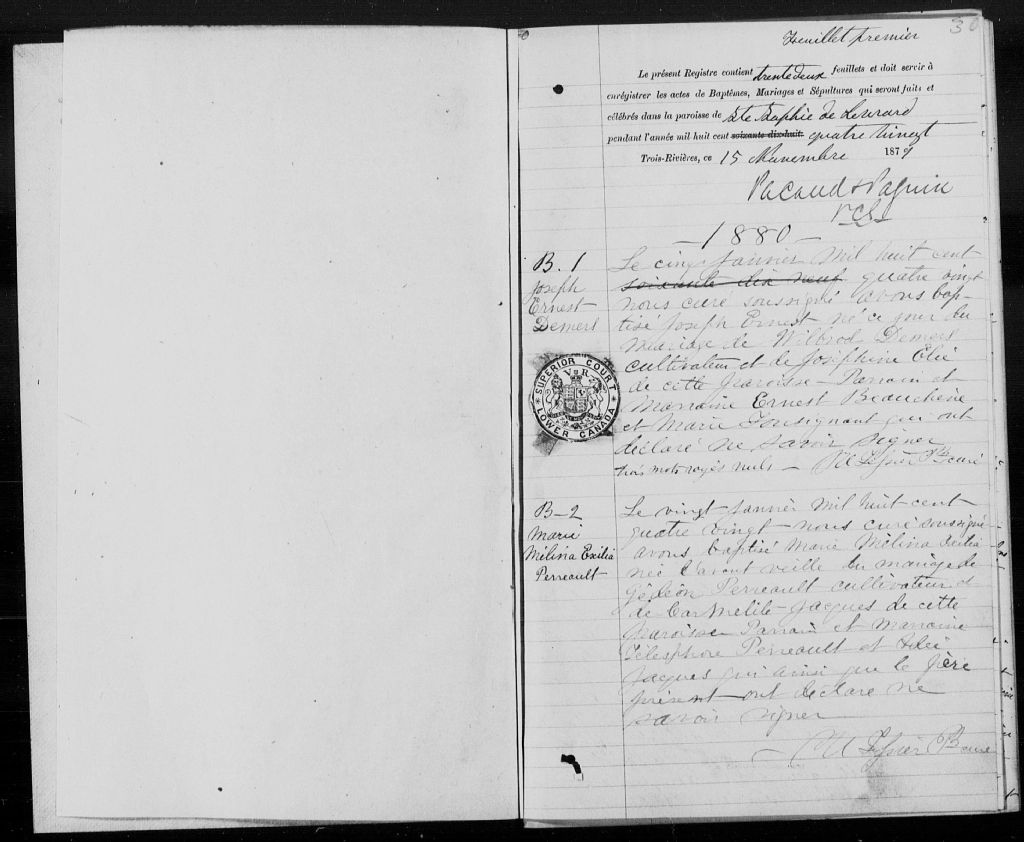 30
Feuillet premier
Le présent Registre contient trente deux feuillets et doit servir à
enrégistrer les actes de Baptêmes, Mariages et Sépultures qui seront faits et
célébrés dans la paroisse de Ste Sophie de Levrard
pendant l'année mil huit cent soixante dix-huit. quatre vingt
Trois-Rivières, ce 15 Novembre 1879
Pacaud & Paquin
PCS
-1880-
B. 1
Joseph
Ernest
Demers
Le cinq Janvier mil huit cent
soixante dix neuf quatre vingt
nous curé soussigné avons bap-
tisé Joseph Ernest né ce jour du
mariage de Wilbrod Demers
cultivateur et de Joséphine
de cette Paroisse - Parrain et
Marraine Ernest Beauchêne
et Marie Tousignant qui ont
déclaré ne savoir signer
trois mots rayés nuls - Ptre curé
SUPERIOR COURT
V R
LOWER CANADA
B-2
Marie
Mélina Exilia
Perreault
Le vingt Janvier mil huit cent
quatre vingt nous curé soussigné
avons baptisé Marie Mélina Exilia
née l'avant veille du mariage de
Gédéon Perreault cultivateur et
de Carmelite Jacques de cette
Paroisse Parrain et Marraine
Télesphore Perreault et
Jacques qui ainsi que le père
présent ont déclaré ne
savoir signer
Ptre curé